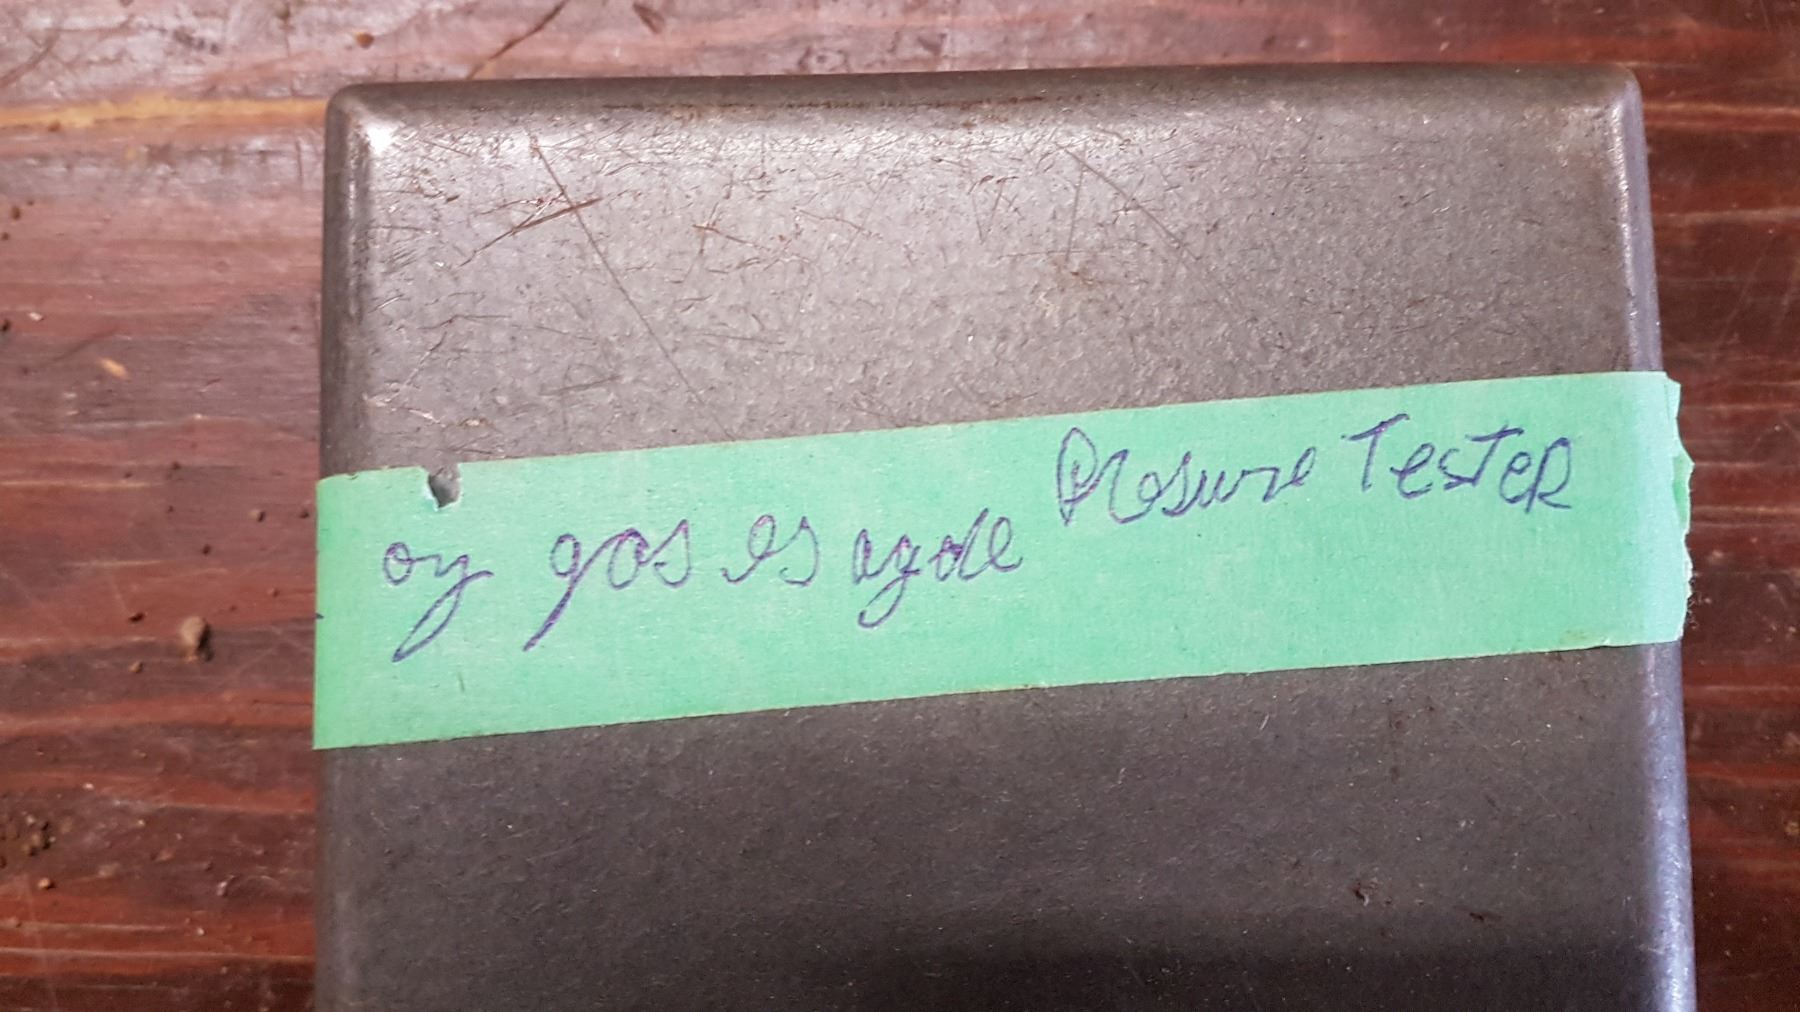 oy gas es agde Presure Tester